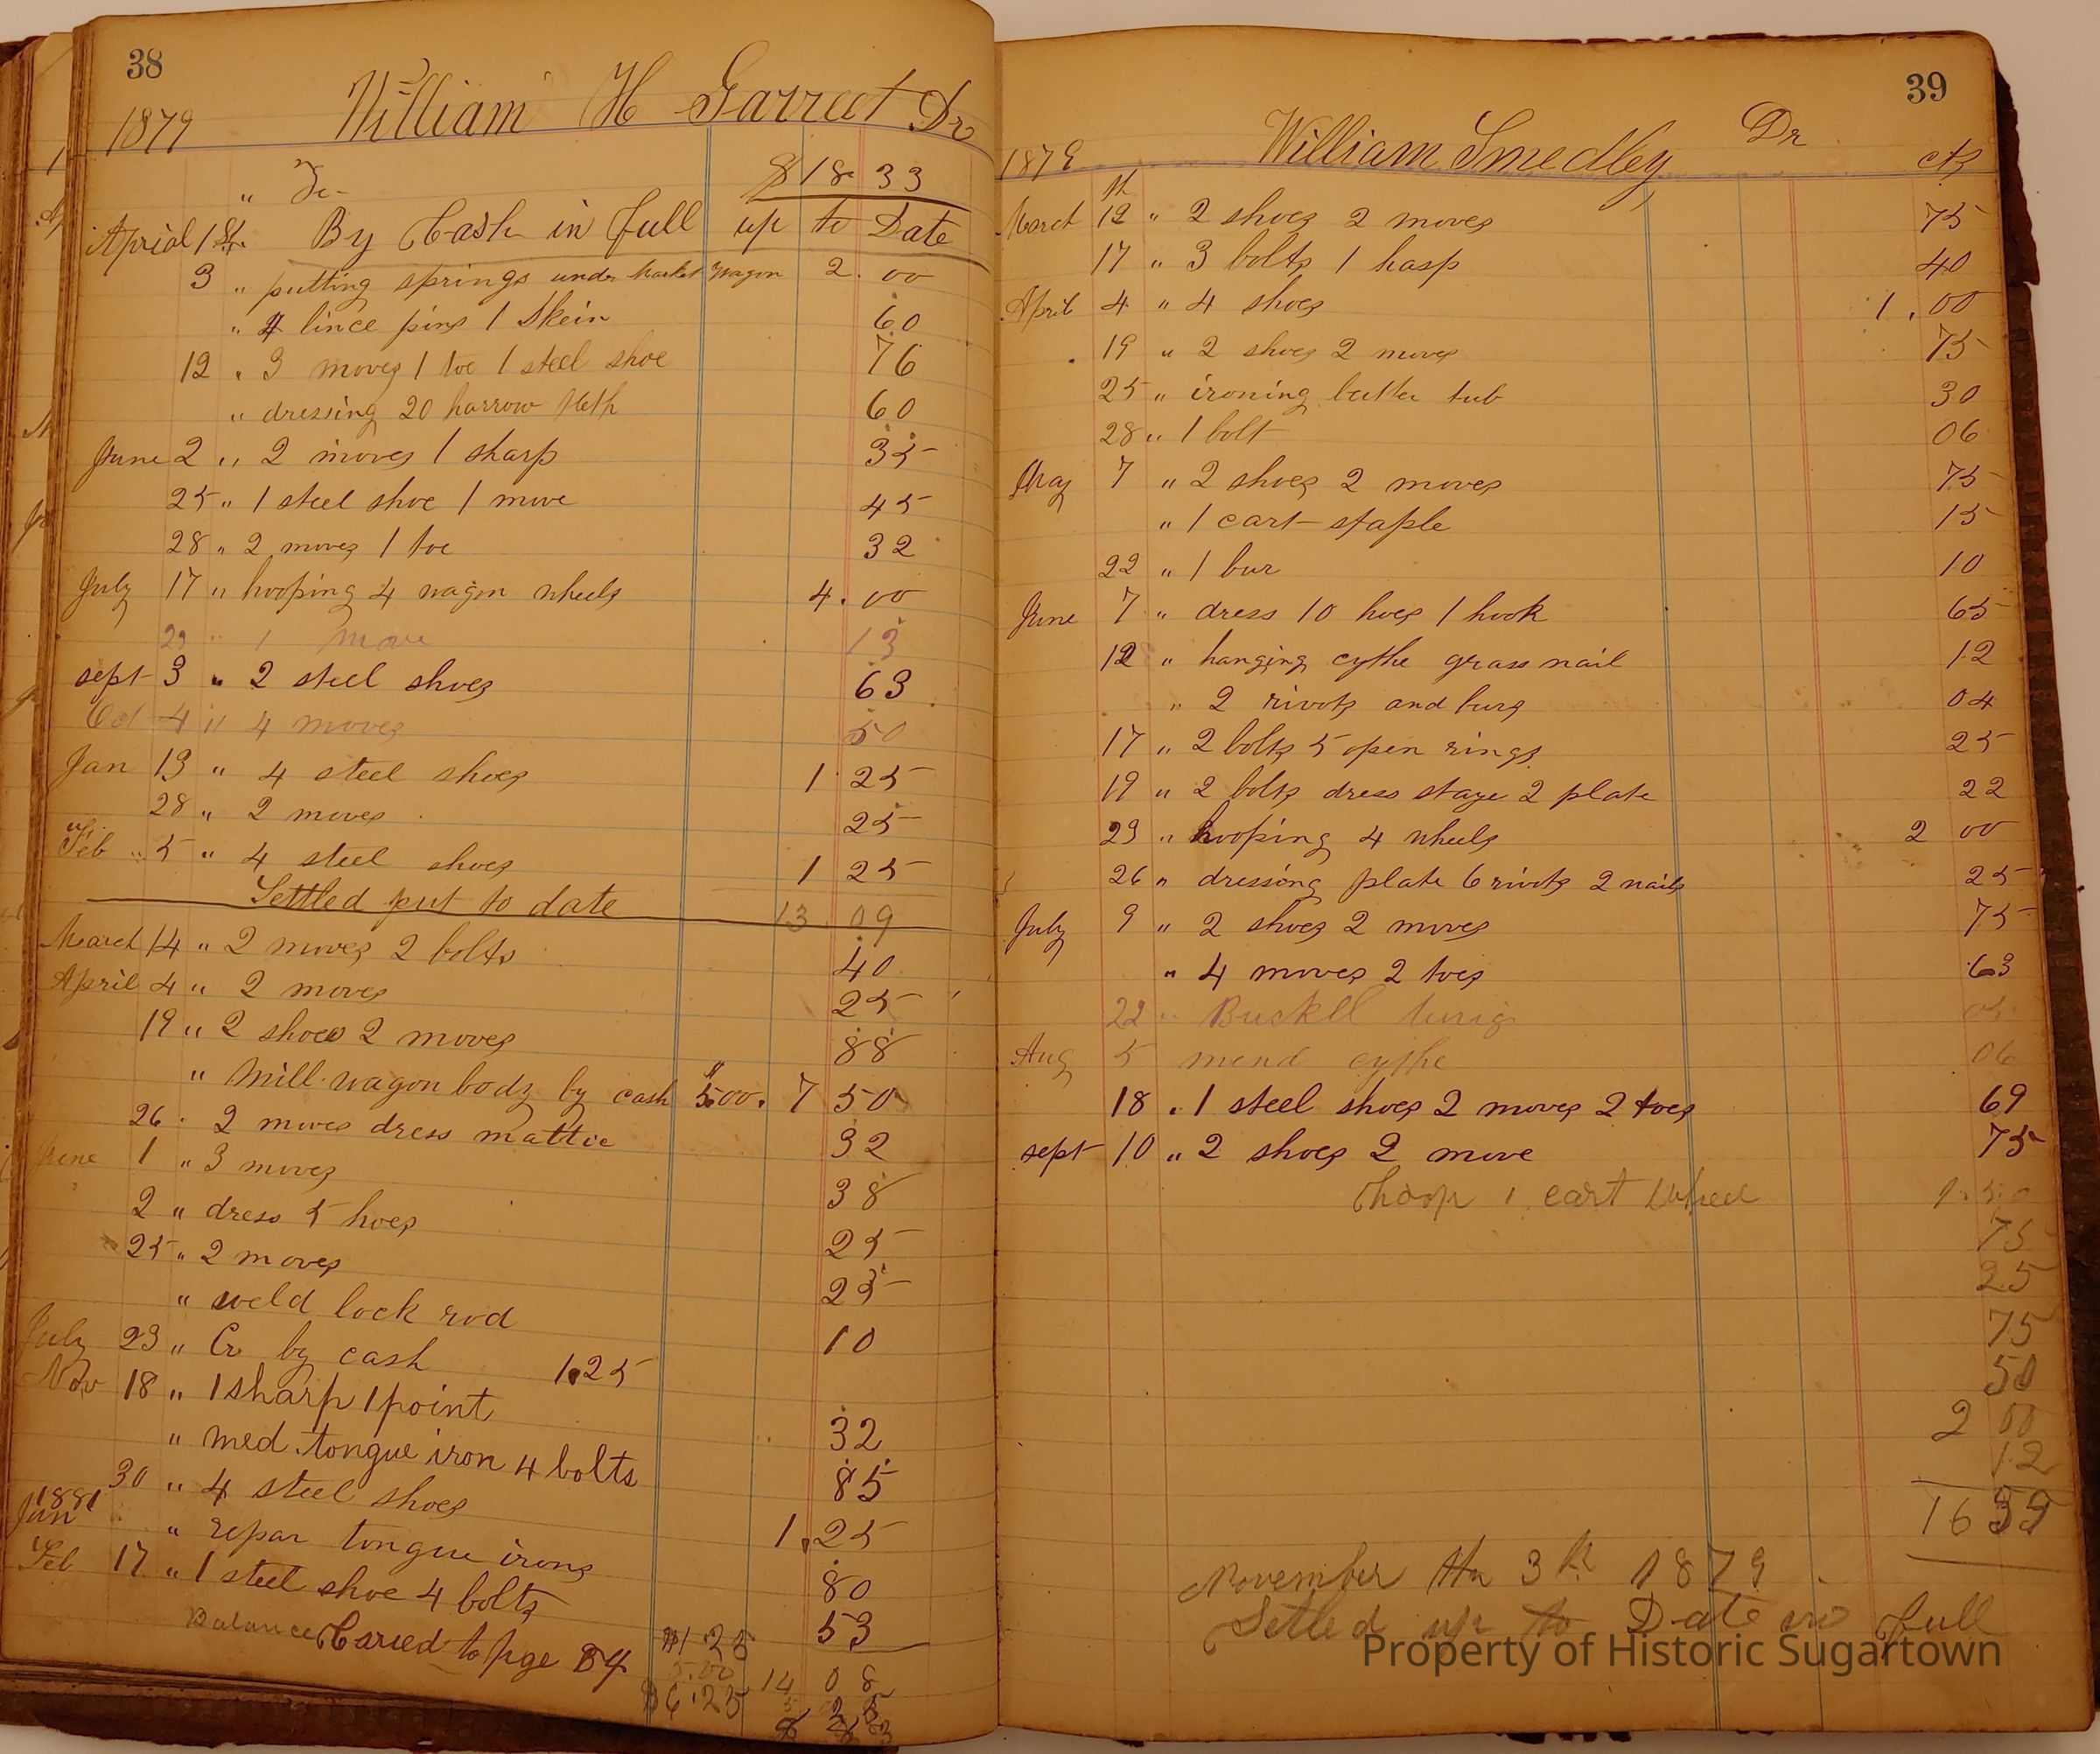 38
1879 William H Garret Dr
" To $18 33
Aprial 1st. By Cash in full up to Date
3 " putting springs under Market Wagon 2.00
" 4 lince pins 1 Skein 60
12 " 3 moves 1 toe 1 steel shoe 76
" dressing 20 harrow teth 60
June 2 " 2 moves 1 sharp 35
25 " 1 steel shoe 1 move 45
28 " 2 moves 1 toe 32
July 17 " hooping 4 wagon wheels 4.00
23 " 1 move 13
sept 3 " 2 steel shoes 63
Oct 4 " 4 moves 50
Jan 13 " 4 steel shoes 1 25
28 " 2 moves 25
Feb 5 " 4 steel shoes 1 25
Settled put to date 13.09
March 14 " 2 moves 2 bolts 40
April 4 " 2 moves 25
19 " 2 shoes 2 moves 88
" Mill wagon body by cash 5.00. 7 50
26 " 2 moves dress mattic 32
June 1 " 3 moves 38
2 " dress 5 hoes 25
25 " 2 moves 25
" weld lock rod 10
July 23 " Cr by cash 1.25
Nov 18 " 1 sharp 1 point 32
" med tongue iron 4 bolts 85
30 " 4 steel shoes 1.25
1881
Jan " repar tongue irons 80
Feb 17 " 1 steel shoe 4 bolts 53
Balance Caried to pge 84 $1 25
5.00 14 08
$6.25
39
1879 William Smedley Dr cts
March 12th " 2 shoes 2 moves 75
17 " 3 bolts 1 hasp 40
April 4 " 4 shoes 1.00
19 " 2 shoes 2 moves 75
25 " ironing butter tub 30
28 " 1 bolt 06
May 7 " 2 shoes 2 moves 75
" 1 cart staple 15
22 " 1 bur 10
June 7 " dress 10 hoes 1 hook 65
12 " hanging cythe grass nail 12
" 2 rivots and burs 04
17 " 2 bolts 5 open rings 25
19 " 2 bolts dress stage 2 plate 22
23 " hooping 4 wheels 2 00
26 " dressing plate 6 rivots 2 nails 25
July 9 " 2 shoes 2 moves 75
" 4 moves 2 toes 63
22 " Buskll 05
Aug 5 mend cythe 06
18 " 1 steel shoes 2 moves 2 toes 69
sept 10 " 2 shoes 2 move 75
hoop 1 cart Wheel 1.50
75
25
75
50
2 00
12
16 39
November the 3th 1879
Setled up to Date in full
Property of Historic Sugartown